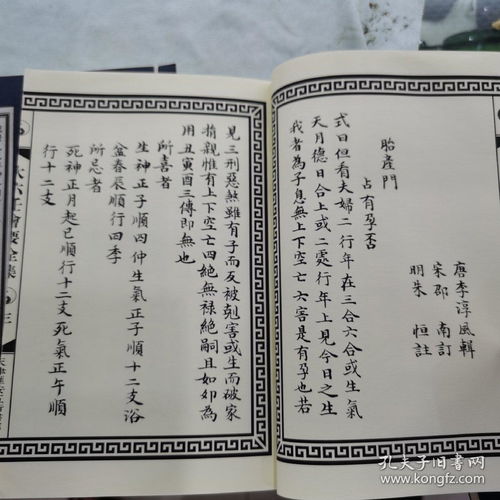 唐李淳風輯
宋邵 南訂
明朱 恒註
胎產門
占有孕否
式曰但看夫婦二行年在三合六合或生氣
天月德日合上或二處行年上見今日之生
我者為子息無上下空亡六害是有孕也若
見三刑惡煞雖有子而反被剋害或生而破家
損親惟有上下空亡四絕無祿絕嗣且如卯為
用丑寅酉三傳即無也
所喜者
生神正子順四仲生氣正子順十二支浴
盆春辰順行四季
所忌者
死神正月起巳順行十二支死氣正午順
行十二支
大六壬會要全集
三
孔夫子旧书网
kongfz.com